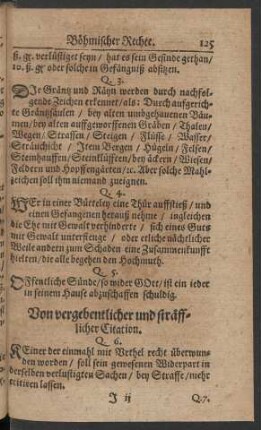 Böhmischer Rechte. 125
ß. gr. verlüstiget seyn / hat es sein Gesinde gethan /
10. ß. gr oder solche in Gefängnüß absitzen.
Q. 3.
DIe Gräntz und Räyn werden durch nachfol-
gends Zeichen erkennet / als: Durch auffgerich-
te Gräntzsäulen / bey alten umbgehauenen Bäu-
men / bey alten auffgeworffenen Gräben / Thalen /
Wegen / Strassen / Steigen / Flüsse / Wasser /
Sträuchicht / Item Bergen / Hügeln / Felsen /
Steinhauffen / Steinklüfften / bey äckern / Wiesen /
Feldern und Hopffengärten / ec. Aber solche Mahl-
zeichen soll ihm niemand zueignen.
Q. 4.
WEr in einer Bütteley eine Thür auffstieß / und
einen Gefangenen heraus nehme / ingleichen
die Ehe mit Gewalt verhinderte / sich eines Guts
mit Gewalt unterstienge / oder etliche nächtlicher
Weile andern zum Schaden eine Zusammenkunfft
hielten / die alle begehen den Hochmuth.
Q. 5.
OEffentliche Sünde / so wider GOtt / ist ein ieder
in seinem Hause abzuschaffen schuldig.
Von vergebentlicher und sträff-
licher Citation.
Q. 6.
KEiner der einmahl mit Urthel recht überwun-
den worden / soll sein gewesenen Widerpart in
derselben verlustigten Sachen / bey Straffe / mehr
citiren lassen.
J ij Q. 7.